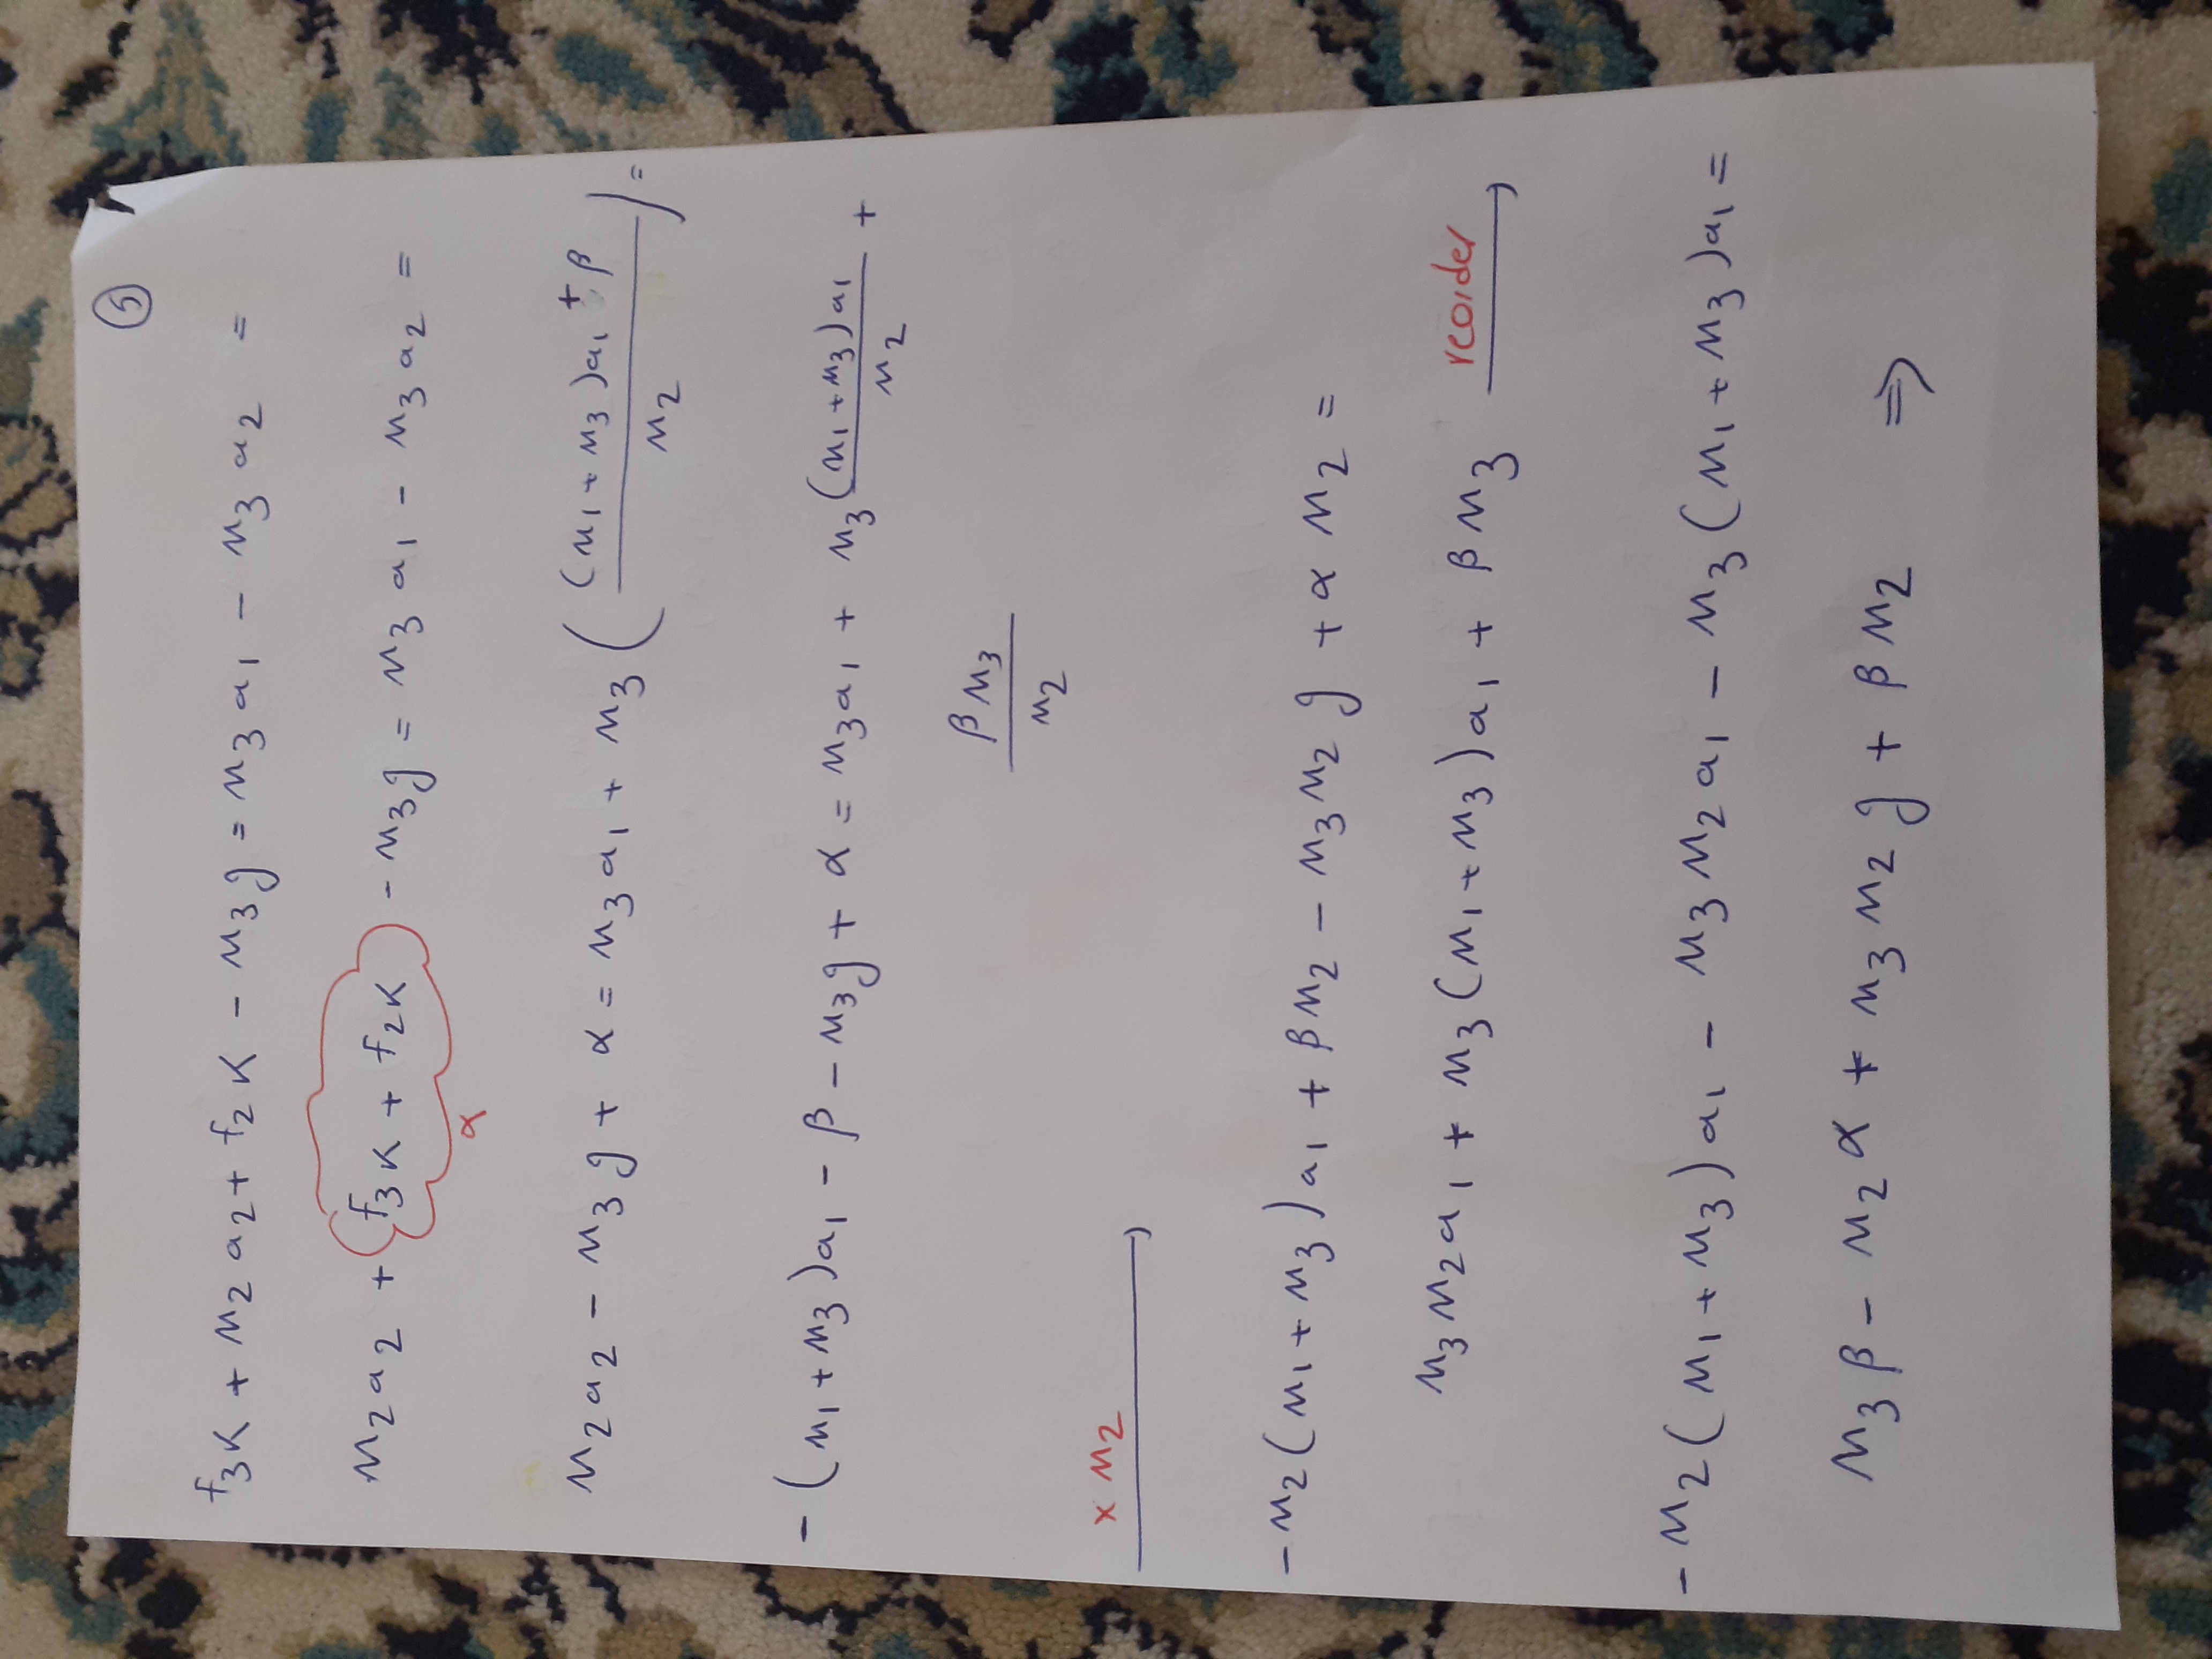 5
f₃k + M₂a₂ + f₂k - M₃g = M₃a₁ - M₃a₂ =
M₂a₂ + f₃k + f₂k - M₃g = M₃a₁ - M₃a₂ =
α
M₂a₂ - M₃g + α = M₃a₁ + M₃( ((M₁ + M₃)a₁ + β) / M₂ ) =
-(M₁ + M₃)a₁ - β - M₃g + α = M₃a₁ + M₃(M₁ + M₃)a₁ / M₂ +
βM₃ / M₂
× M₂ →
-M₂(M₁ + M₃)a₁ + βM₂ - M₃M₂g + αM₂ =
M₃M₂a₁ + M₃(M₁ + M₃)a₁ + βM₃ reorder →
-M₂(M₁ + M₃)a₁ - M₃M₂a₁ - M₃(M₁ + M₃)a₁ =
M₃β - M₂α + M₃M₂g + βM₂ ⇒